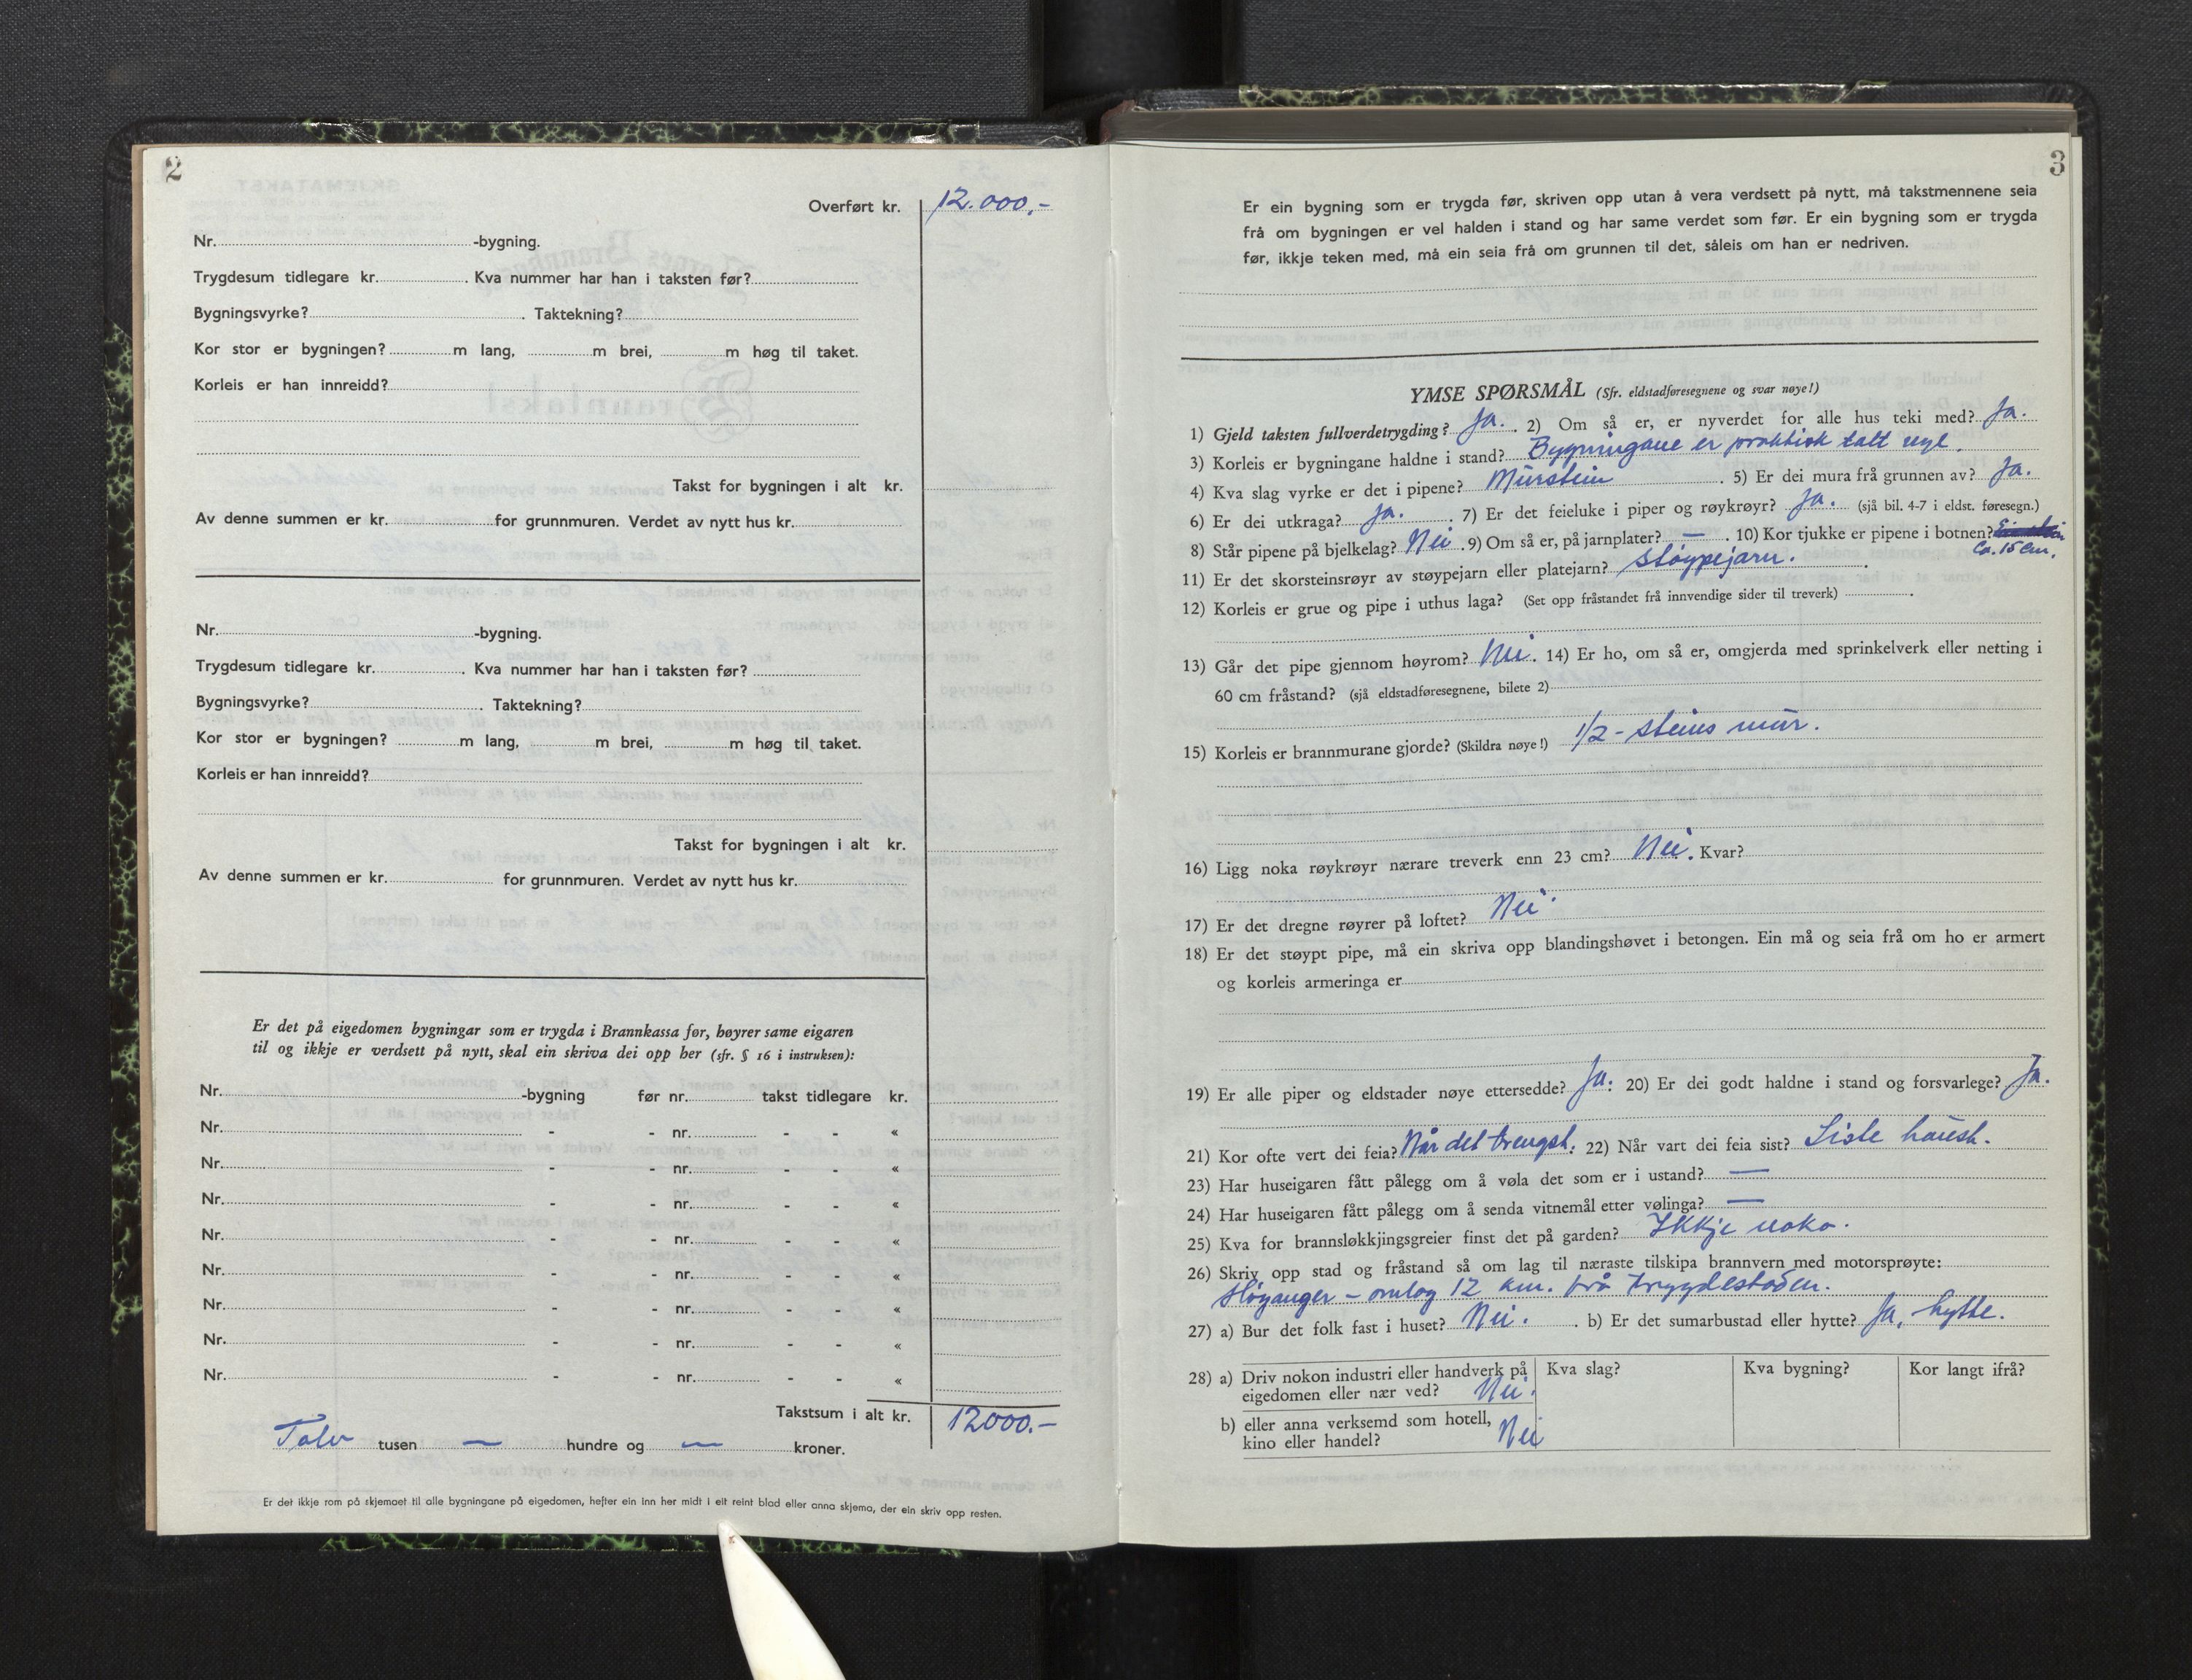 2
Overført kr. 12.000,-
Nr. -bygning.
Trygdesum tidlegare kr. . Kva nummer har han i taksten før?
Bygningsvyrke? . Taktekning?
Kor stor er bygningen? m lang, m brei, m høg til taket.
Korleis er han innreidd?
Takst for bygningen i alt kr.
Av denne summen er kr. for grunnmuren. Verdet av nytt hus kr.
Nr. -bygning.
Trygdesum tidlegare kr. . Kva nummer har han i taksten før?
Bygningsvyrke? . Taktekning?
Kor stor er bygningen? m lang, m brei, m høg til taket.
Korleis er han innreidd?
Takst for bygningen i alt kr.
Av denne summen er kr. for grunnmuren. Verdet av nytt hus kr.
Er det på eigedomen bygningar som er trygda i Brannkassa før, høyrer same eigaren
til og ikkje er verdsett på nytt, skal ein skriva dei opp her (sfr. § 16 i instruksen):
Nr. -bygning før nr. takst tidlegare kr.
Nr. - - nr. - - «
Nr. - - nr. - - «
Nr. - - nr. - - «
Nr. - - nr. - - «
Nr. - - nr. - - «
Nr. - - nr. - - «
Nr. - - nr. - - «
Nr. - - nr. - - «
Takstsum i alt kr. 12000.-
Tolv tusen — hundre og — kroner.
Er det ikkje rom på skjemaet til alle bygningane på eigedomen, hefter ein inn her midt i eit reint blad eller anna skjema, der ein skriv opp resten.
3
Er ein bygning som er trygda før, skriven opp utan å vera verdsett på nytt, må takstmennene seia
frå om bygningen er vel halden i stand og har same verdet som før. Er ein bygning som er trygda
før, ikkje teken med, må ein seia frå om grunnen til det, såleis om han er nedriven.
YMSE SPØRSMÅL (Sfr. eldstadføresegnene og svar nøye!)
1) Gjeld taksten fullverdetrygding? Ja. . 2) Om så er, er nyverdet for alle hus teki med? Ja.
3) Korleis er bygningane haldne i stand? Bygningane er praktisk talt nye.
4) Kva slag vyrke er det i pipene? Murstein . 5) Er dei mura frå grunnen av? Ja.
6) Er dei utkraga? Ja. . 7) Er det feieluke i piper og røykrøyr? Ja. (sjå bil. 4-7 i eldst. føresegn.)
8) Står pipene på bjelkelag? Nei . 9) Om så er, på jarnplater? — . 10) Kor tjukke er pipene i botnen?
Ca. 15 cm.
11) Er det skorsteinsrøyr av støypejarn eller platejarn? støypejarn. .
12) Korleis er grue og pipe i uthus laga? (Set opp fråstandet frå innvendige sider til treverk) .
13) Går det pipe gjennom høyrom? Nei. 14) Er ho, om så er, omgjerda med sprinkelverk eller netting i
60 cm fråstand? (sjå eldstadføresegnene, bilete 2)
15) Korleis er brannmurane gjorde? (Skildra nøye!) 1/2 - steins mur.
16) Ligg noka røykrøyr nærare treverk enn 23 cm? Nei. Kvar?
17) Er det dregne røyrer på loftet? Nei.
18) Er det støypt pipe, må ein skriva opp blandingshøvet i betongen. Ein må og seia frå om ho er armert
og korleis armeringa er
19) Er alle piper og eldstader nøye ettersedde? Ja. 20) Er dei godt haldne i stand og forsvarlege? Ja.
21) Kor ofte vert dei feia? Når det trengst. 22) Når vart dei feia sist? Siste haust.
23) Har huseigaren fått pålegg om å vøla det som er i ustand? —
24) Har huseigaren fått pålegg om å senda vitnemål etter vølinga? —
25) Kva for brannsløkkjingsgreier finst det på garden? Ikkje noko.
26) Skriv opp stad og fråstand så om lag til næraste tilskipa brannvern med motorsprøyte:
Høyanger - omlag 12 km. frå trygdestaden.
27) a) Bur det folk fast i huset? Nei. . b) Er det sumarbustad eller hytte? Ja, hytte.
28) a) Driv nokon industri eller handverk på Kva slag? Kva bygning? Kor langt ifrå?
eigedomen eller nær ved? Nei.
b) eller anna verksemd som hotell,
kino eller handel? Nei